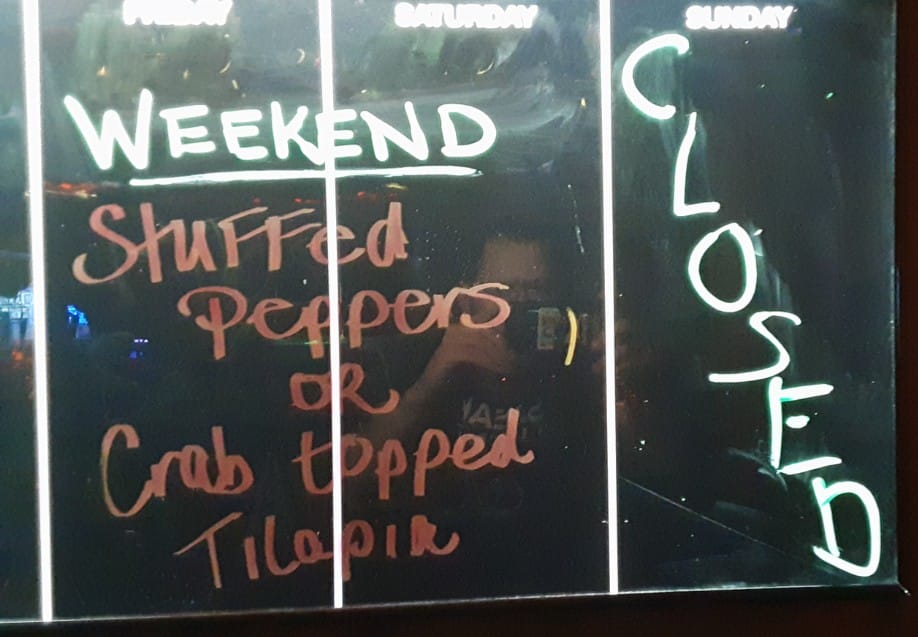 FRIDAY
SATURDAY
SUNDAY
WEEKEND
Stuffed
Peppers
OR
Crab topped
Tilapia
CLOSED